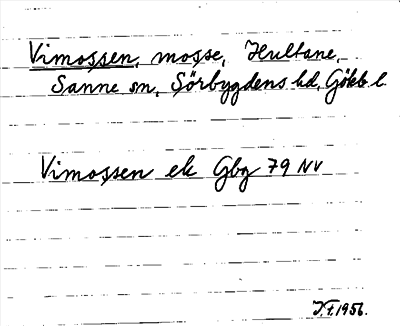 Vimossen, mosse, Hultane,
Sanne sn, Sörbygdens hd, Göteb l.
Vimossen ek Gbg 79 NV
1956.